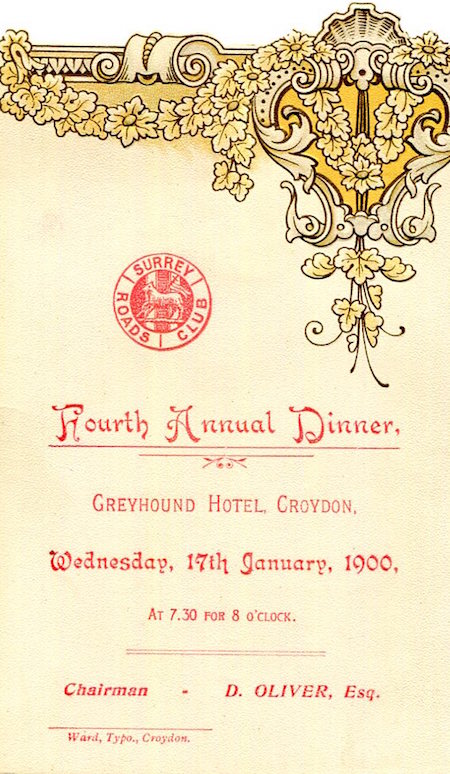 SURREY
ROADS CLUB
Fourth Annual Dinner,
GREYHOUND HOTEL, CROYDON,
Wednesday, 17th January, 1900,
AT 7.30 FOR 8 O'CLOCK.
Chairman - D. OLIVER, Esq.
Ward, Typo., Croydon.